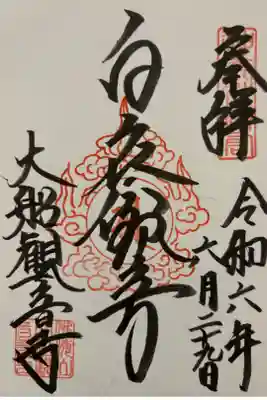 奉拝
令和六年
六月二十九日
白衣観音
大船観音寺